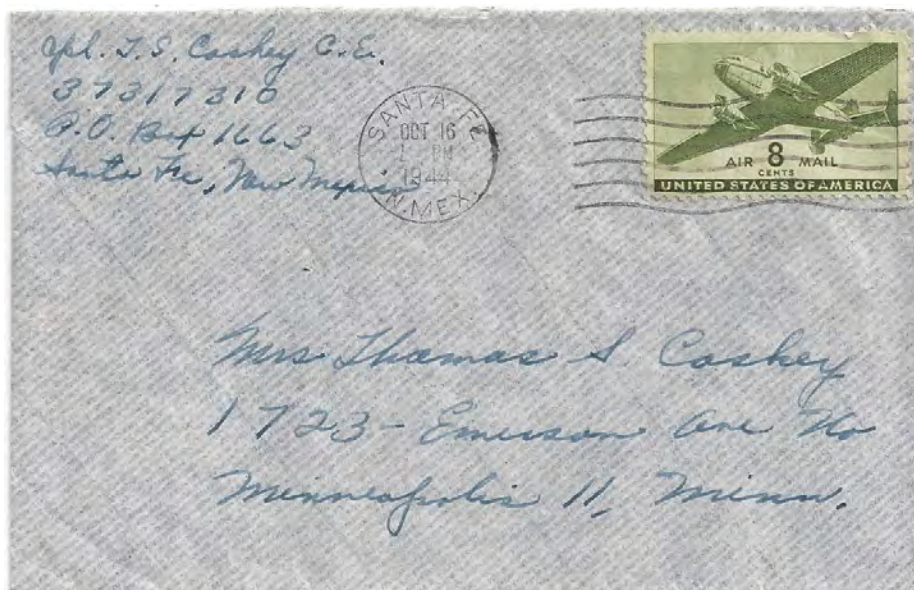 Cpl. T.S. Coskey C.E.
37317310
P.O. Box 1663
Santa Fe, New Mexico
SANTA FE
OCT 16
PM
1944
N. MEX.
AIR 8 MAIL
CENTS
UNITED STATES OF AMERICA
Mrs Thomas S Coskey
1723 - Emerson Ave No
Minneapolis 11, Minn.